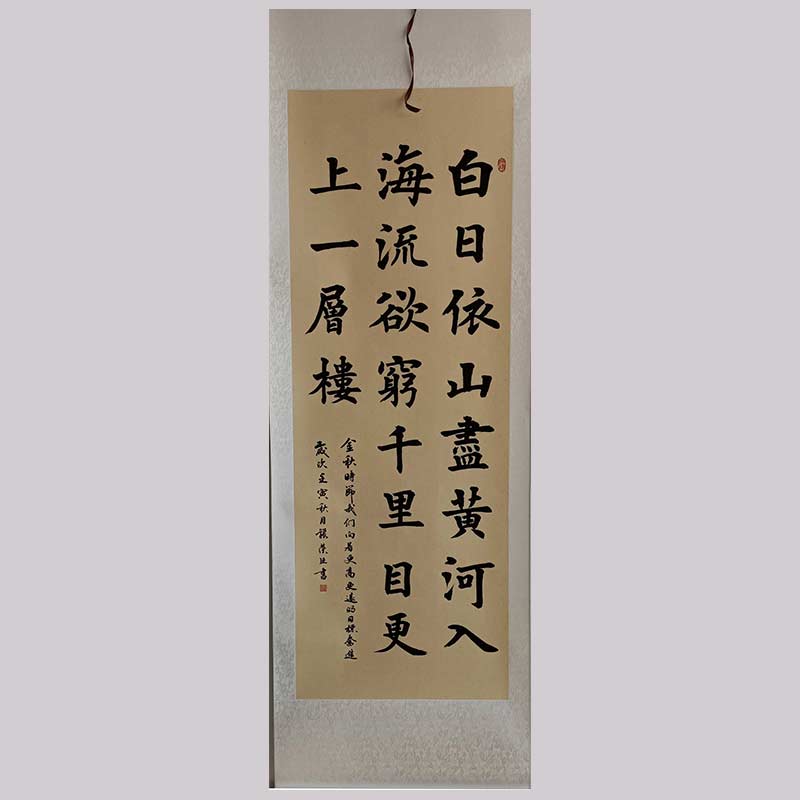 白日依山盡黄河入
海流欲窮千里目更
上一層樓
金秋時節我们向着更高更遠的目標奮進
歲次壬寅秋月 書